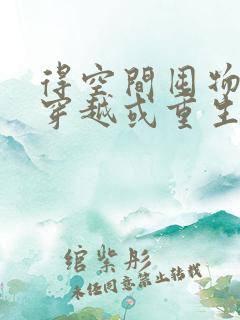 得空間囤物
穿越或重生
綰紫彤
未经同意禁止转载